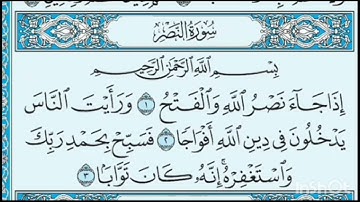 سُورَةُ النَّصْرِ
بِسْمِ اللَّهِ الرَّحْمَٰنِ الرَّحِيمِ
إِذَا جَآءَ نَصْرُ اللَّهِ وَالْفَتْحُ ١ وَرَأَيْتَ النَّاسَ
يَدْخُلُونَ فِى دِينِ اللَّهِ أَفْوَاجًا ٢ فَسَبِّحْ بِحَمْدِ رَبِّكَ
وَاسْتَغْفِرْهُ إِنَّهُۥ كَانَ تَوَّابًۢا ٣